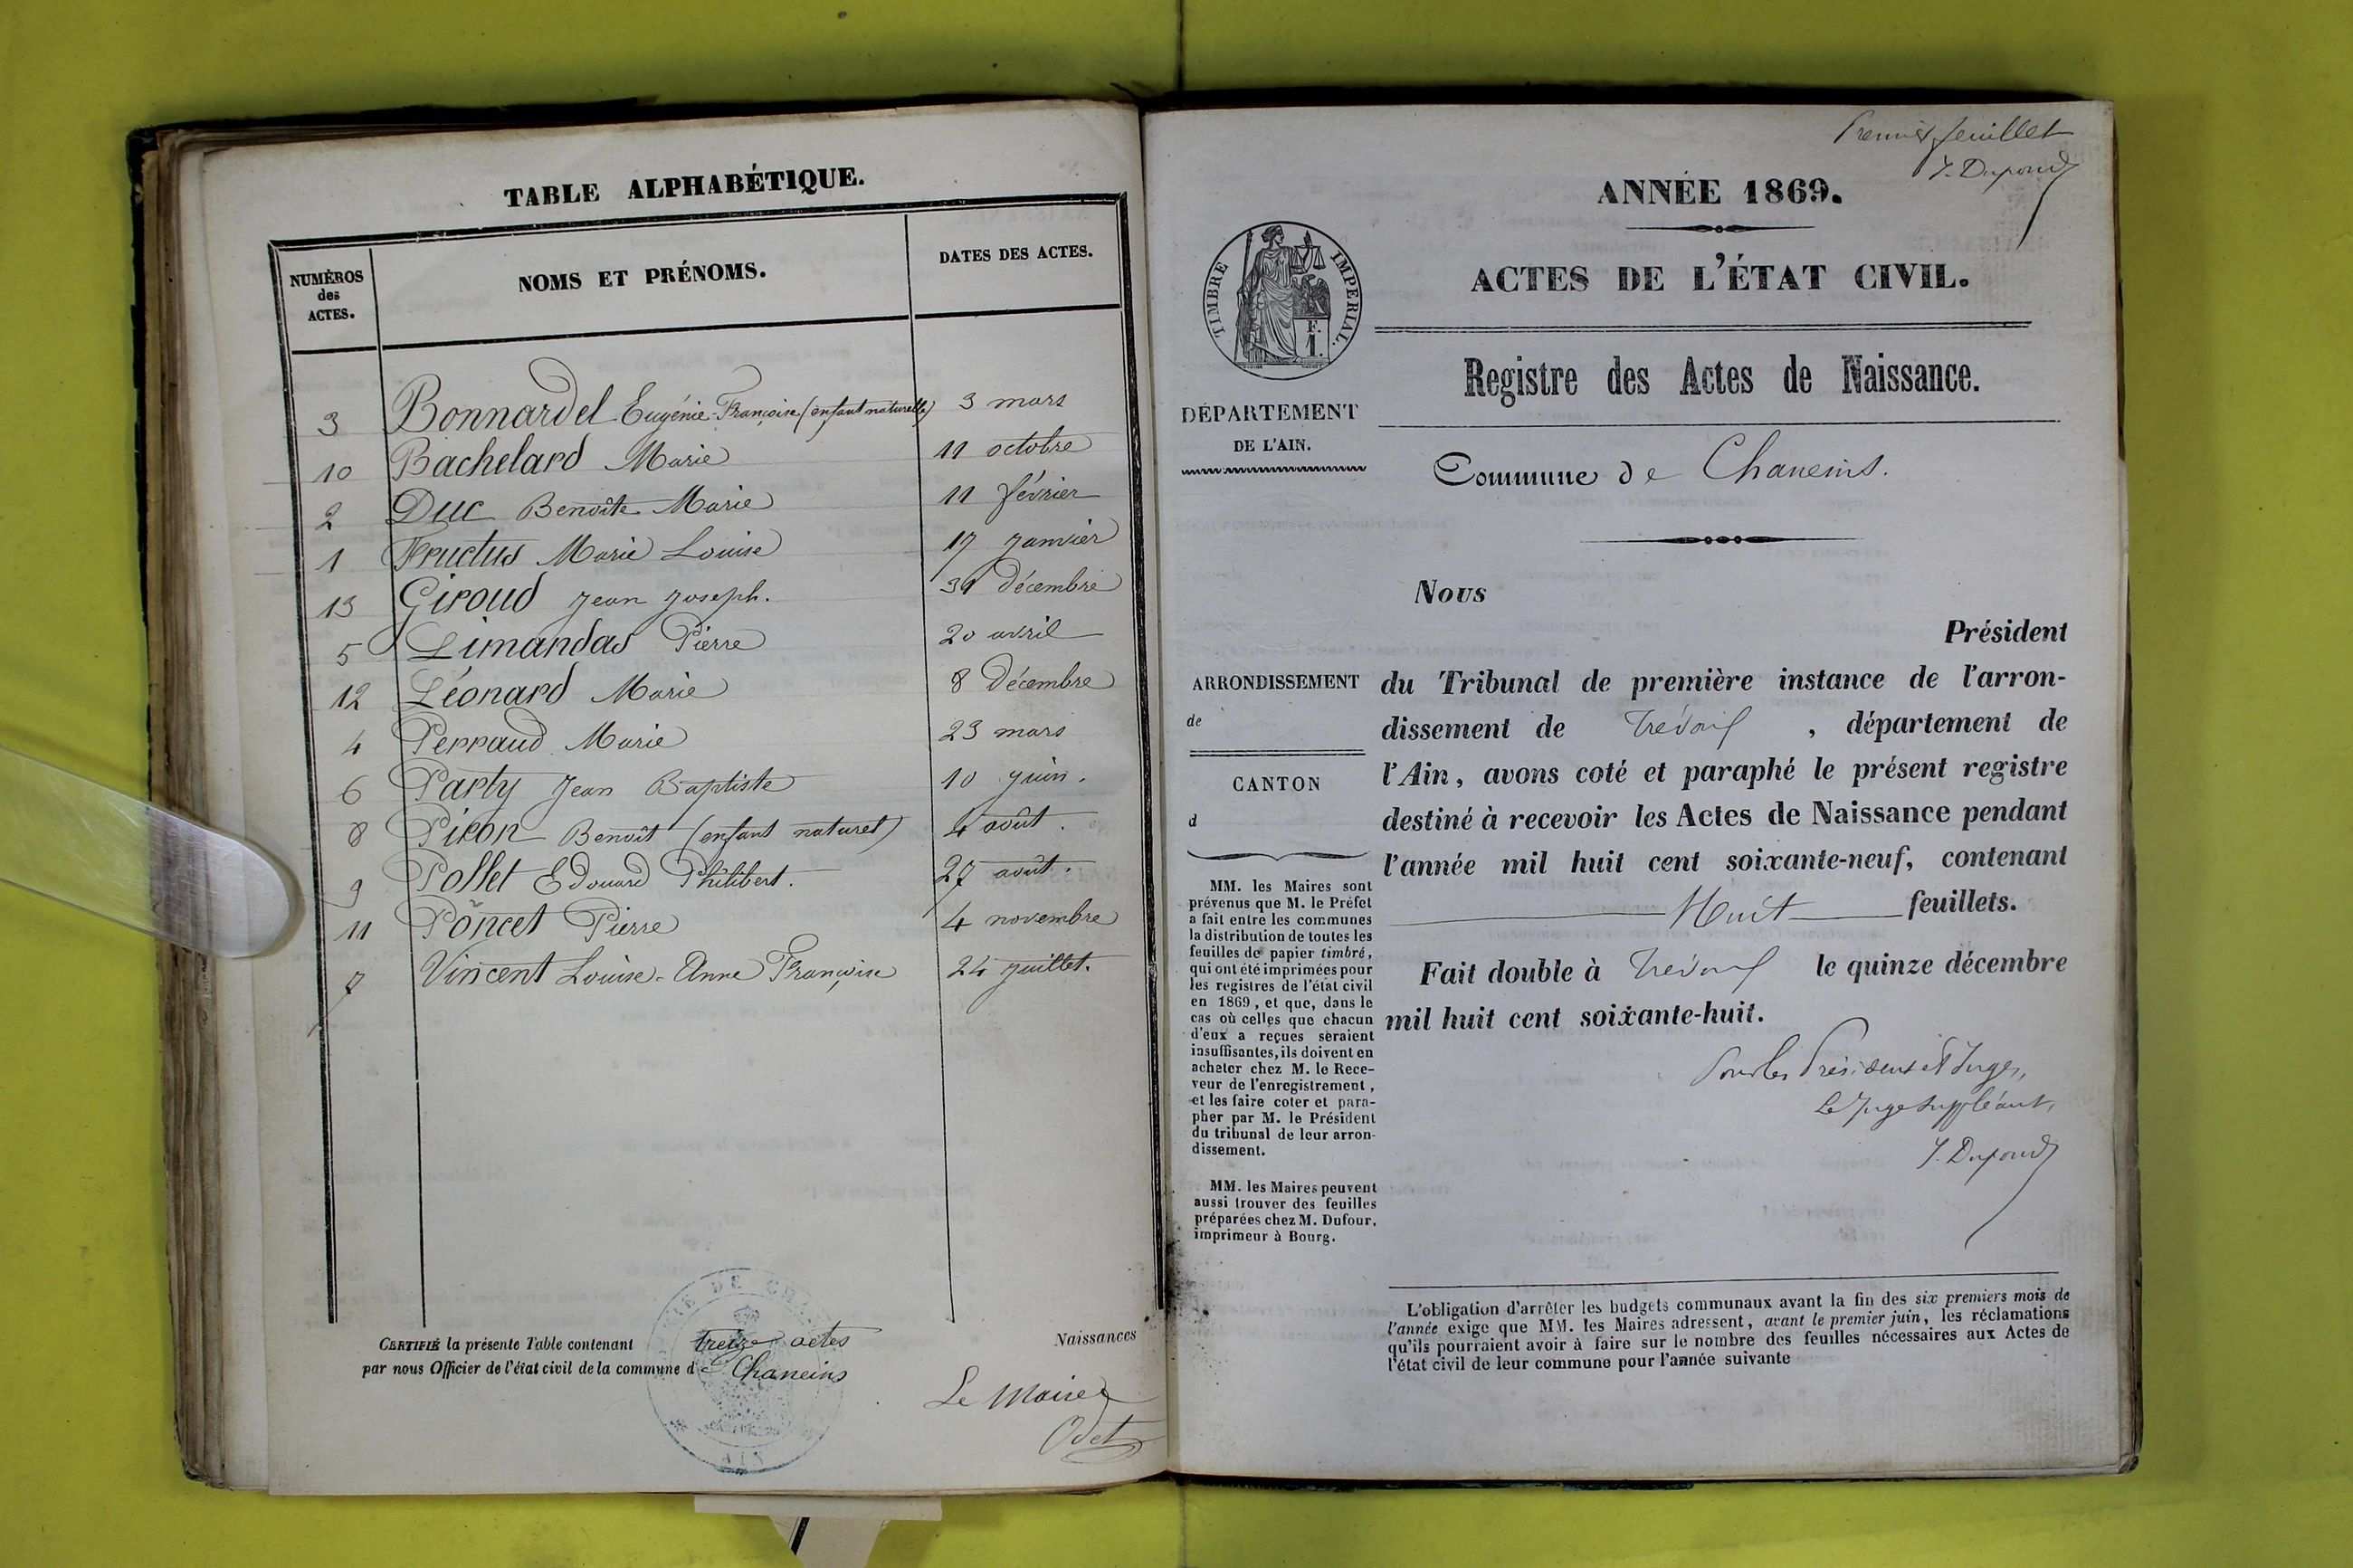 TABLE ALPHABÉTIQUE.
NUMÉROS des ACTES.
NOMS ET PRÉNOMS.
DATES DES ACTES.
3 Bonnardel Eugénie-Françoise (enfant naturelle) 3 mars
10 Bachelard Marie 11 octobre
2 Duc Benoîte Marie 11 février
1 Fructus Marie Louise 17 janvier
13 Giroud Jean Joseph. 31 décembre
5 Limandas Pierre 20 avril
12 Léonard Marie 8 décembre
4 Perraud Marie 23 mars
6 Party Jean Baptiste 10 juin.
8 Piron Benoît (enfant naturel) 4 août.
9 Pollet Edouard Philibert. 27 août.
11 Poncet Pierre 4 novembre
7 Vincent Louise-Anne Françoise 24 juillet.
CERTIFIÉ la présente Table contenant treize actes Naissances
par nous Officier de l'état civil de la commune de Chaneins
Le Maire
Odet
AIN
Premier feuillet
J. Dupond
ANNÉE 1869.
ACTES DE L'ÉTAT CIVIL.
TIMBRE IMPERIAL.
F.
1.
Registre des Actes de Naissance.
DÉPARTEMENT
DE L'AIN.
Commune de Chaneins.
Nous
Président
ARRONDISSEMENT
de
CANTON
d
du Tribunal de première instance de l'arron-
dissement de Trévoux, département de
l'Ain, avons coté et paraphé le présent registre
destiné à recevoir les Actes de Naissance pendant
l'année mil huit cent soixante-neuf, contenant
Huit feuillets.
Fait double à Trévoux le quinze décembre
mil huit cent soixante-huit.
Pour les Présidents et Juges,
Le Juge suppléant,
J. Dupond
MM. les Maires sont
prévenus que M. le Préfet
a fait entre les communes
la distribution de toutes les
feuilles de papier timbré,
qui ont été imprimées pour
les registres de l'état civil
en 1869, et que, dans le
cas où celles que chacun
d'eux a reçues seraient
insuffisantes, ils doivent en
acheter chez M. le Rece-
veur de l'enregistrement,
et les faire coter et para-
pher par M. le Président
du tribunal de leur arron-
dissement.
MM. les Maires peuvent
aussi trouver des feuilles
préparées chez M. Dufour,
imprimeur à Bourg.
L'obligation d'arrêter les budgets communaux avant la fin des six premiers mois de
l'année exige que MM. les Maires adressent, avant le premier juin, les réclamations
qu'ils pourraient avoir à faire sur le nombre des feuilles nécessaires aux Actes de
l'état civil de leur commune pour l'année suivante